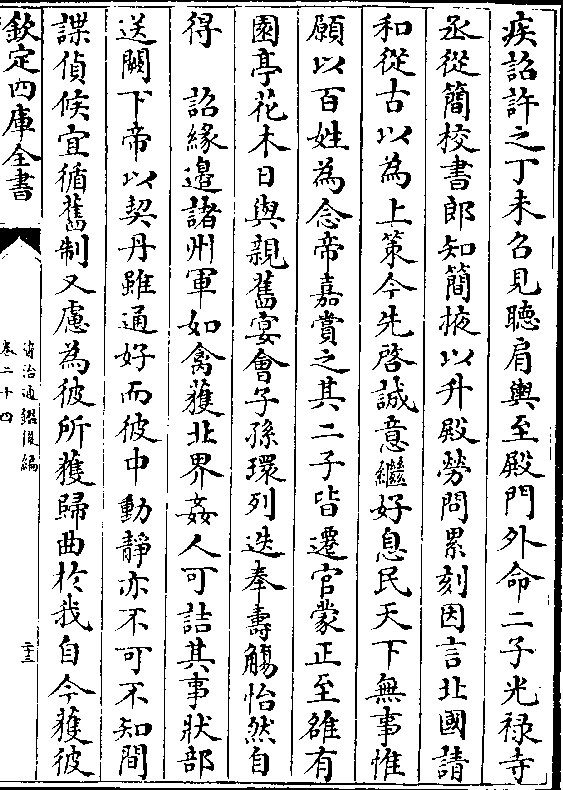 疾詔許之丁未召見聽肩輿至殿門外命二子光禄寺
丞從簡校書郎知簡掖以升殿勞問累刻因言北國請
和從古以為上策今先啓誠意繼好息民天下無事惟
願以百姓為念帝嘉賞之其二子皆遷官蒙正至雒有
園亭花木日與親舊宴會子孫環列迭奉壽觴怡然自
得　詔緣邉諸州軍如禽獲北界姦人可詰其事狀部
送闕下帝以契丹雖通好而彼中動靜亦不可不知間
諜偵候宜循舊制又慮為彼所獲歸曲於我自今獲彼
欽定四庫全書
資治通鑑後編
卷二十四
二十三